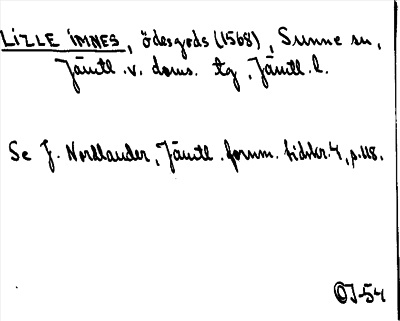 LILLE IMNES, ödesgods (1568), Sunne sn,
Jämtl. v. doms. tg, Jämtl. l.
Se J. Nordlander, Jämtl. fornm. tidskr. 4, p. 118.
OJ-54